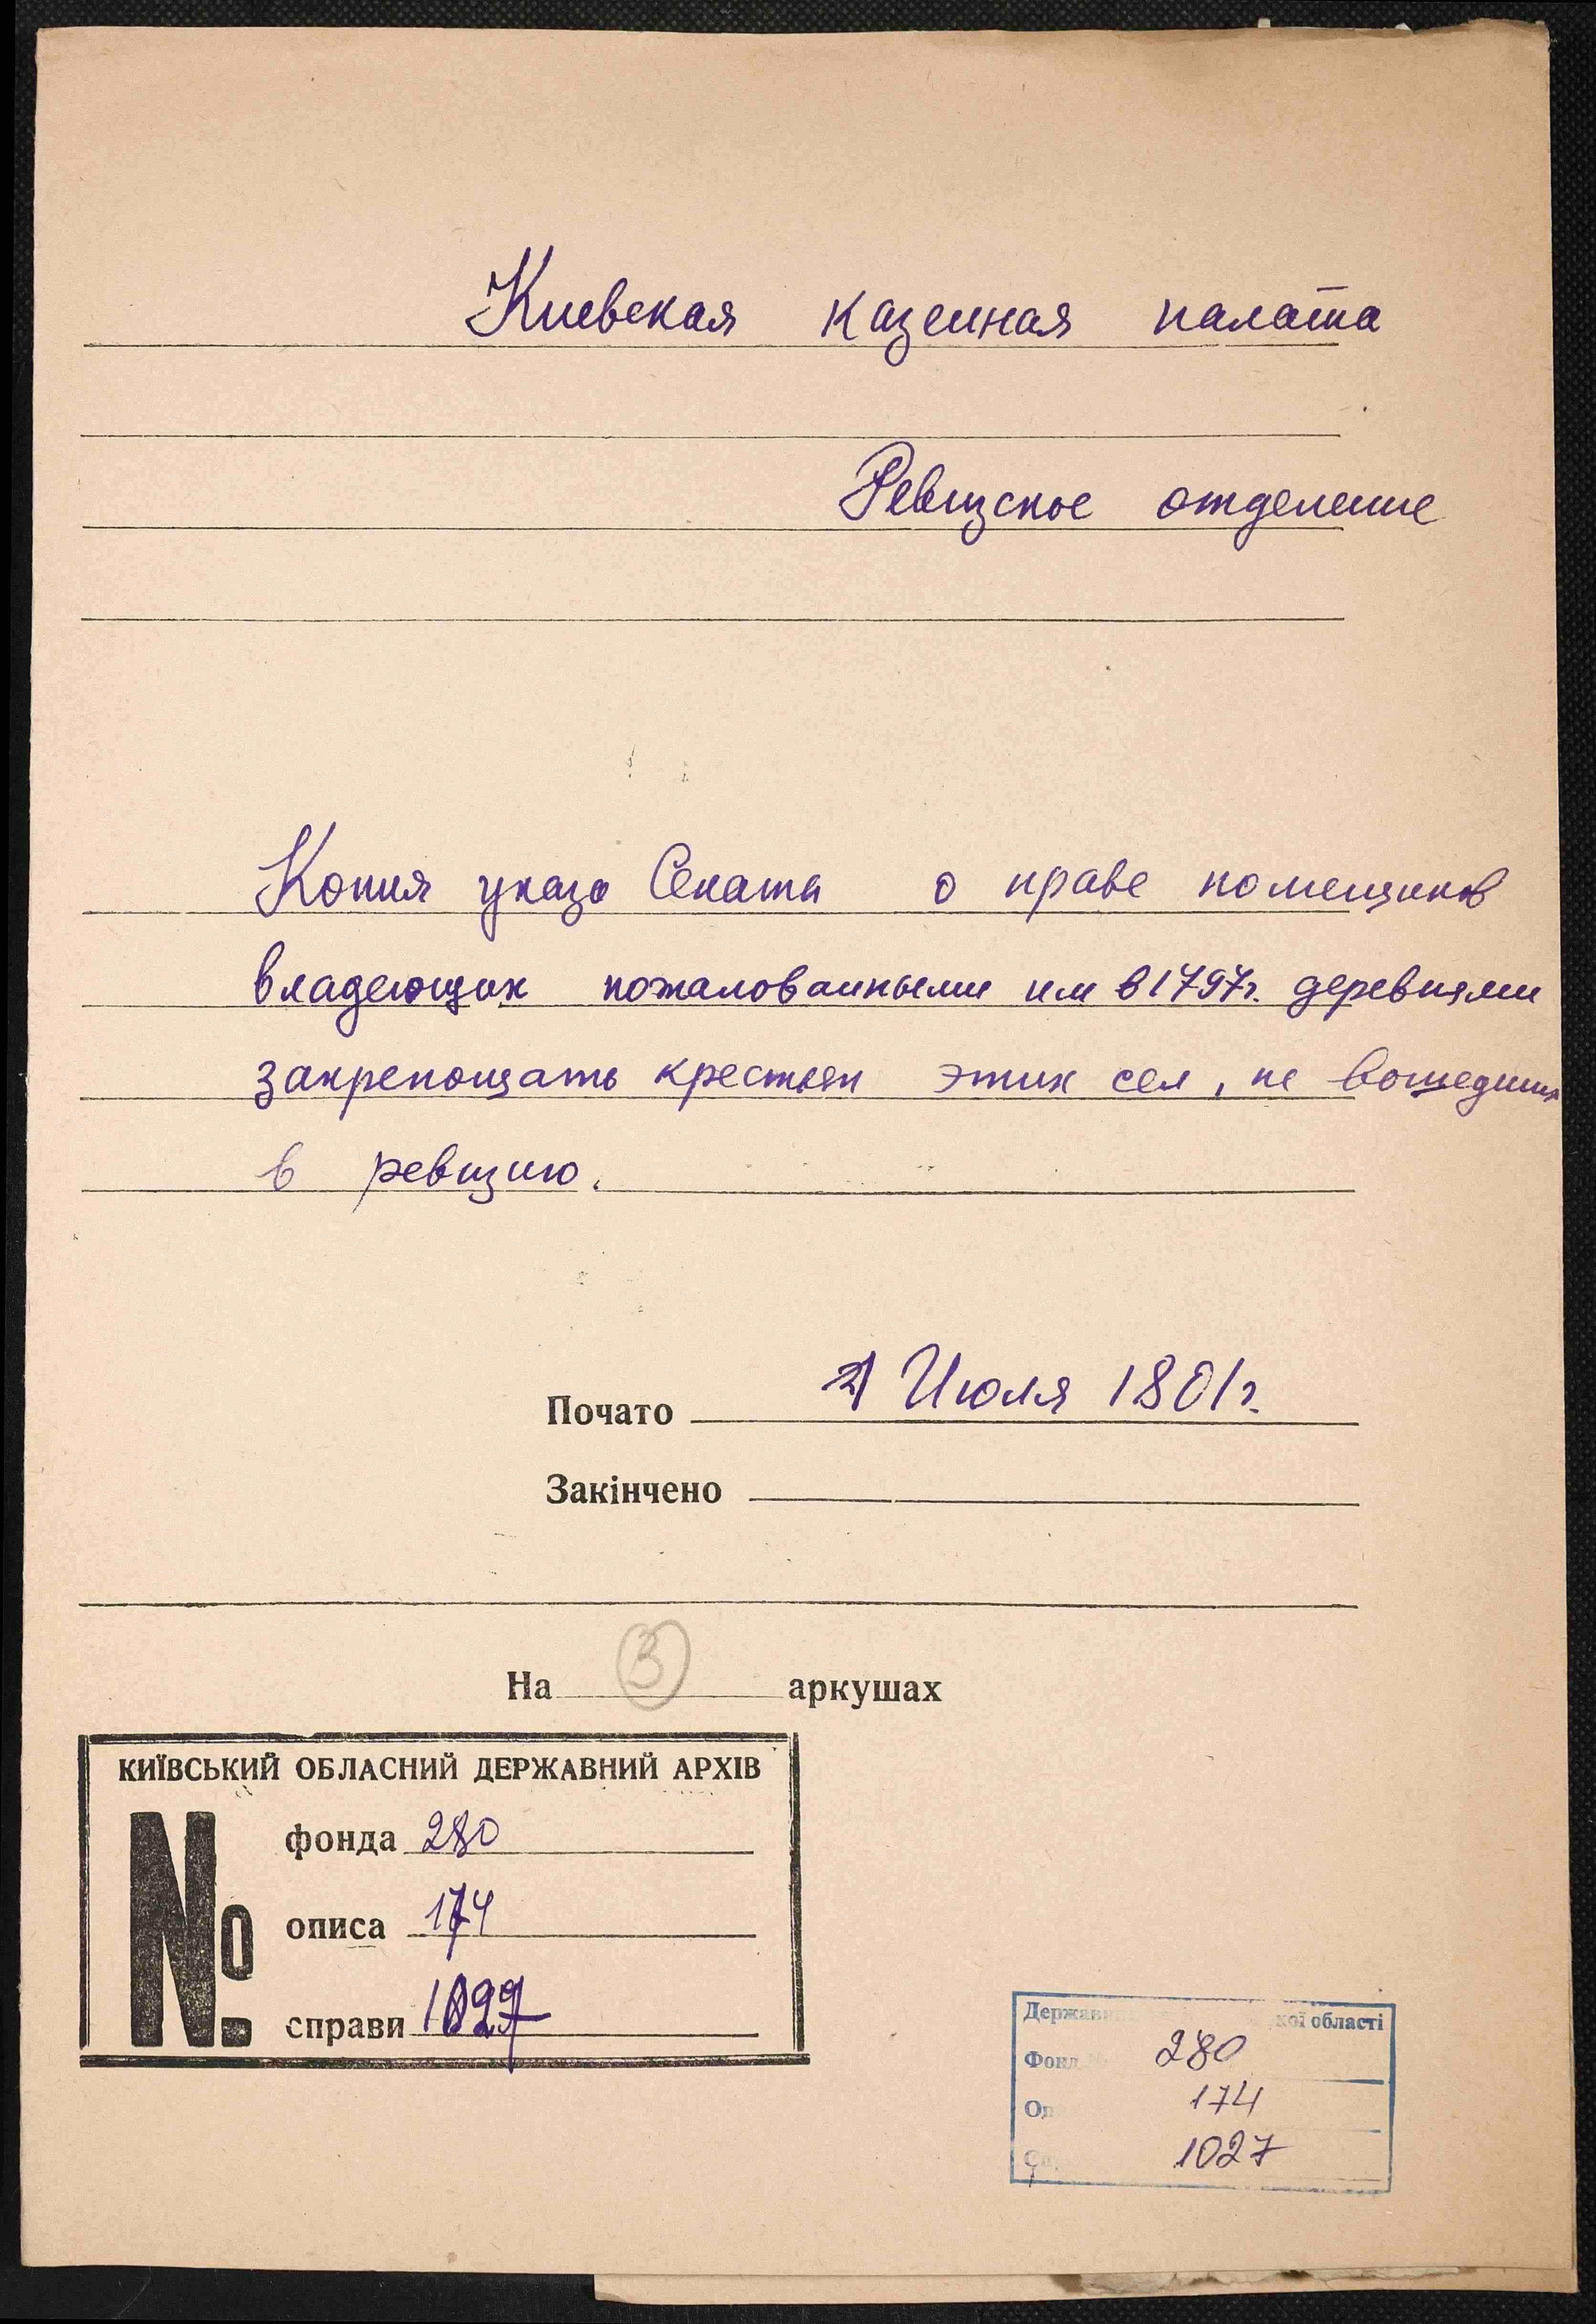 Киевская казенная палата
Ревизское отделение
Копия указа Сената о праве помещиков
владеющих пожалованными им в 1797г. деревнями
закрепощать крестьян этих сел, не вошедших
в ревизию.
Почато 21 Июля 1801г.
Закінчено
На 3 аркушах
КИЇВСЬКИЙ ОБЛАСНИЙ ДЕРЖАВНИЙ АРХІВ
№ фонда 280
описа 174
справи 1027
Державн кої області
Фонд № 280
Оп 174
Сп 1027